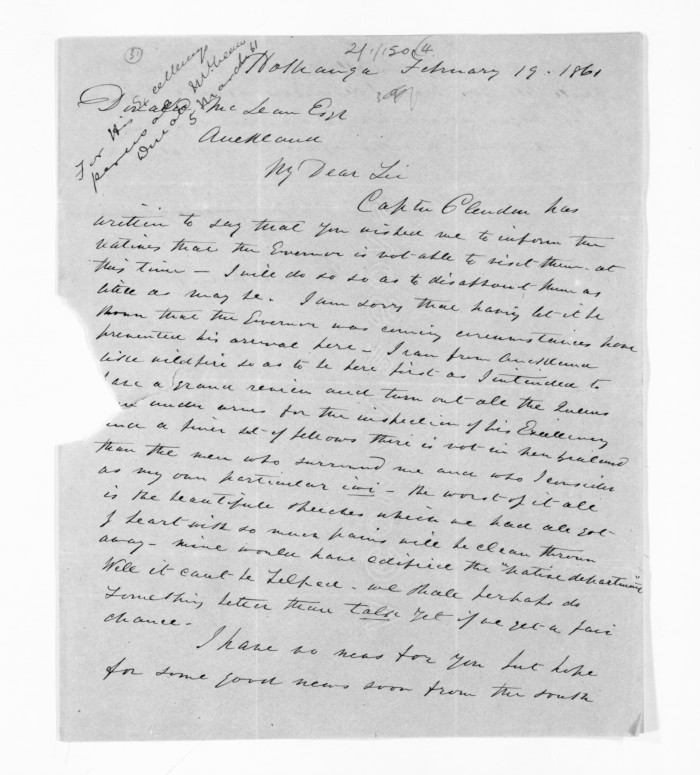 (51)
21/1/50(4
For His Excellency
perusal Mr McLean
Donald
5 March 61
Hokianga February 19. 1861
Donald McLean Esqr
Auckland
My Dear Sir
Captn Clendon has
written to say that you wished me to inform the
natives that the Govenor is not able to visit them at
this time — I will do so so as to disappoint them as
little as may be. I am sorry that having let it be
known that the Govenor was coming circumstances have
prevented his arrival here — I ran from Auckland
like wildfire so as to be here first as I intended to
have a grand review and turn out all the Queens
men under arms for the inspection of his Excellency
and a finer set of fellows there is not in New Zealand
than the men who surround me and who I consider
as my own particular iwi — the worst of it all
is the beautiful speeches which we had all got
by heart with so much pains will be clean thrown
away — mine would have edified the "native department"
Well it cant be helped — we shall perhaps do
something better than talk yet if we get a fair
chance.
I have no news for you but hope
for some good news soon from the south